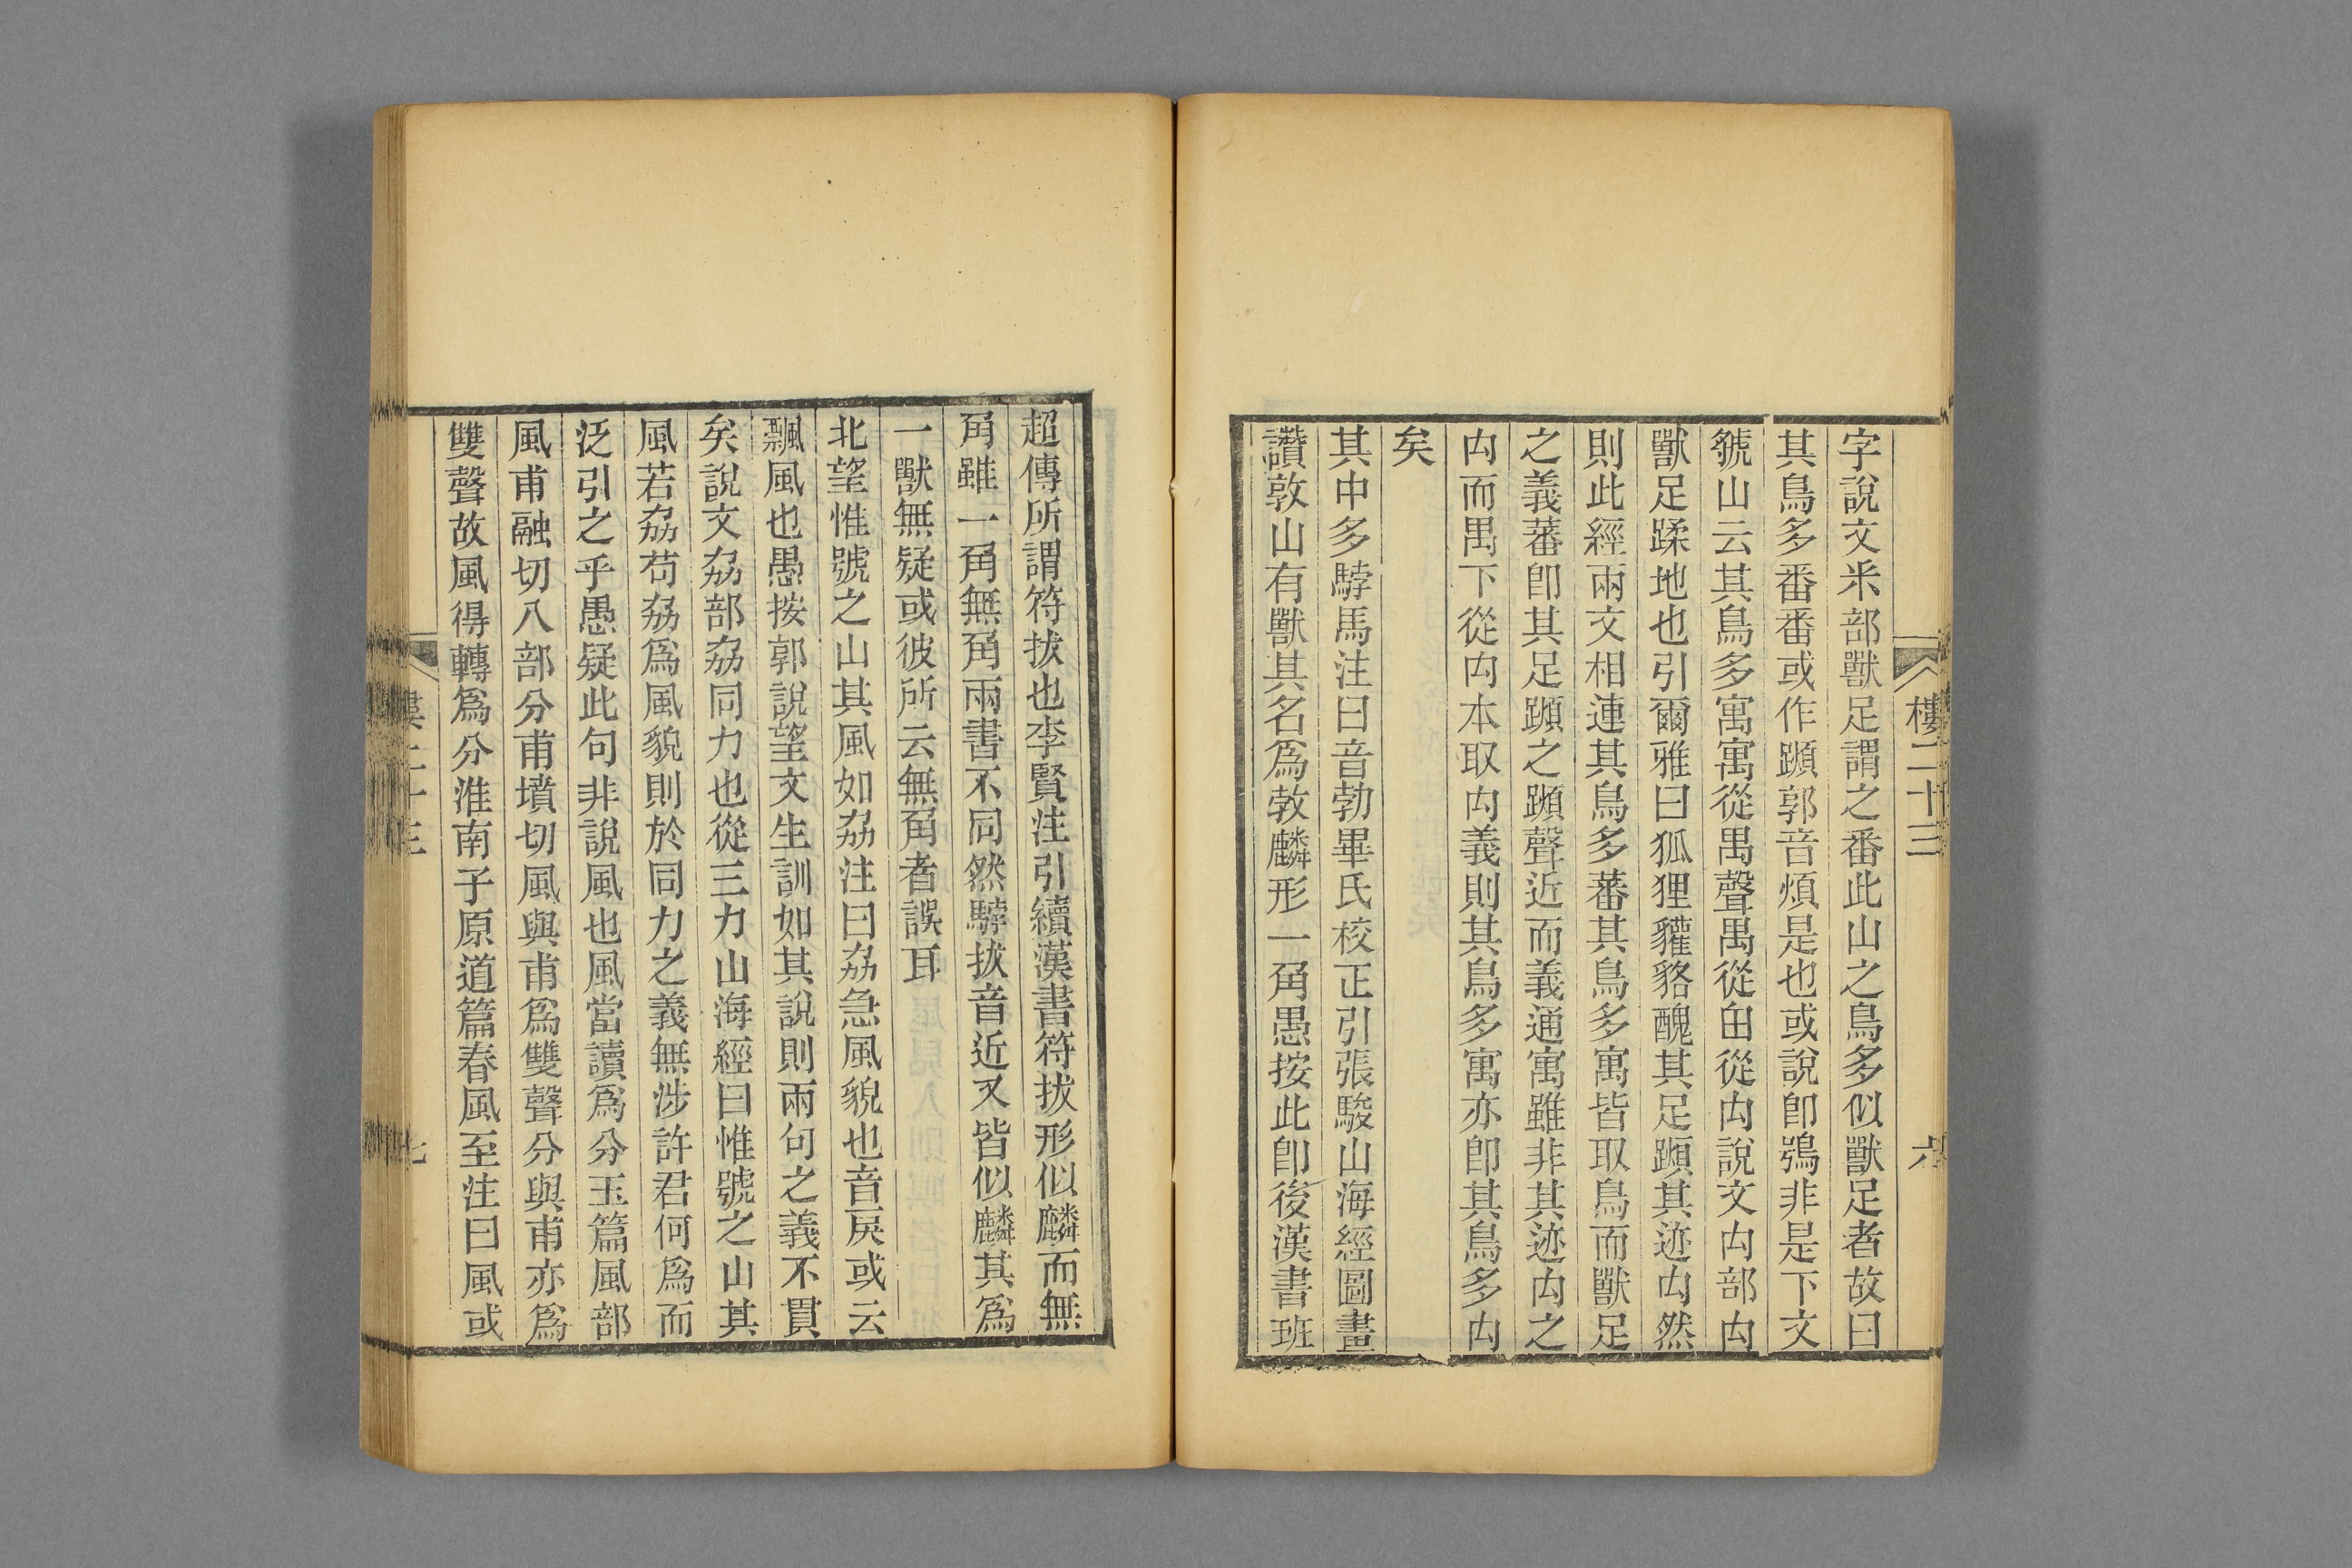 樓二十三
六
字說文釆部獸足謂之番此山之鳥多似獸足者故曰
其鳥多番番或作蹞郭音煩是也或說卽鴞非是下文
虢山云其鳥多寓寓從禺聲禺從甶從禸說文禸部禸
獸足蹂地也引爾雅曰狐狸貛貉醜其足蹞其迹禸然
則此經兩文相連其鳥多蕃其鳥多寓皆取鳥而獸足
之義蕃卽其足蹞之蹞聲近而義通寓雖非其迹禸之
禸而禺下從禸本取禸義則其鳥多寓亦卽其鳥多禸
矣
其中多䮀馬注曰音勃畢氏校正引張駿山海經圖畫
讚敦山有獸其名爲敦麟形一角愚按此卽後漢書班
超傳所謂符拔也李賢注引續漢書符拔形似麟而無
角雖一角無角兩書不同然䮀拔音近又皆似麟其爲
一獸無疑或彼所云無角者誤耳
北望惟號之山其風如劦注曰劦急風貌也音戾或云
飄風也愚按郭說望文生訓如其說則兩句之義不貫
矣說文劦部劦同力也從三力山海經曰惟號之山其
風若劦苟劦爲風貌則於同力之義無涉許君何爲而
泛引之乎愚疑此句非說風也風當讀爲分玉篇風部
風甫融切八部分甫墳切風與甫爲雙聲分與甫亦爲
雙聲故風得轉爲分淮南子原道篇春風至注曰風或
樓二十三
七